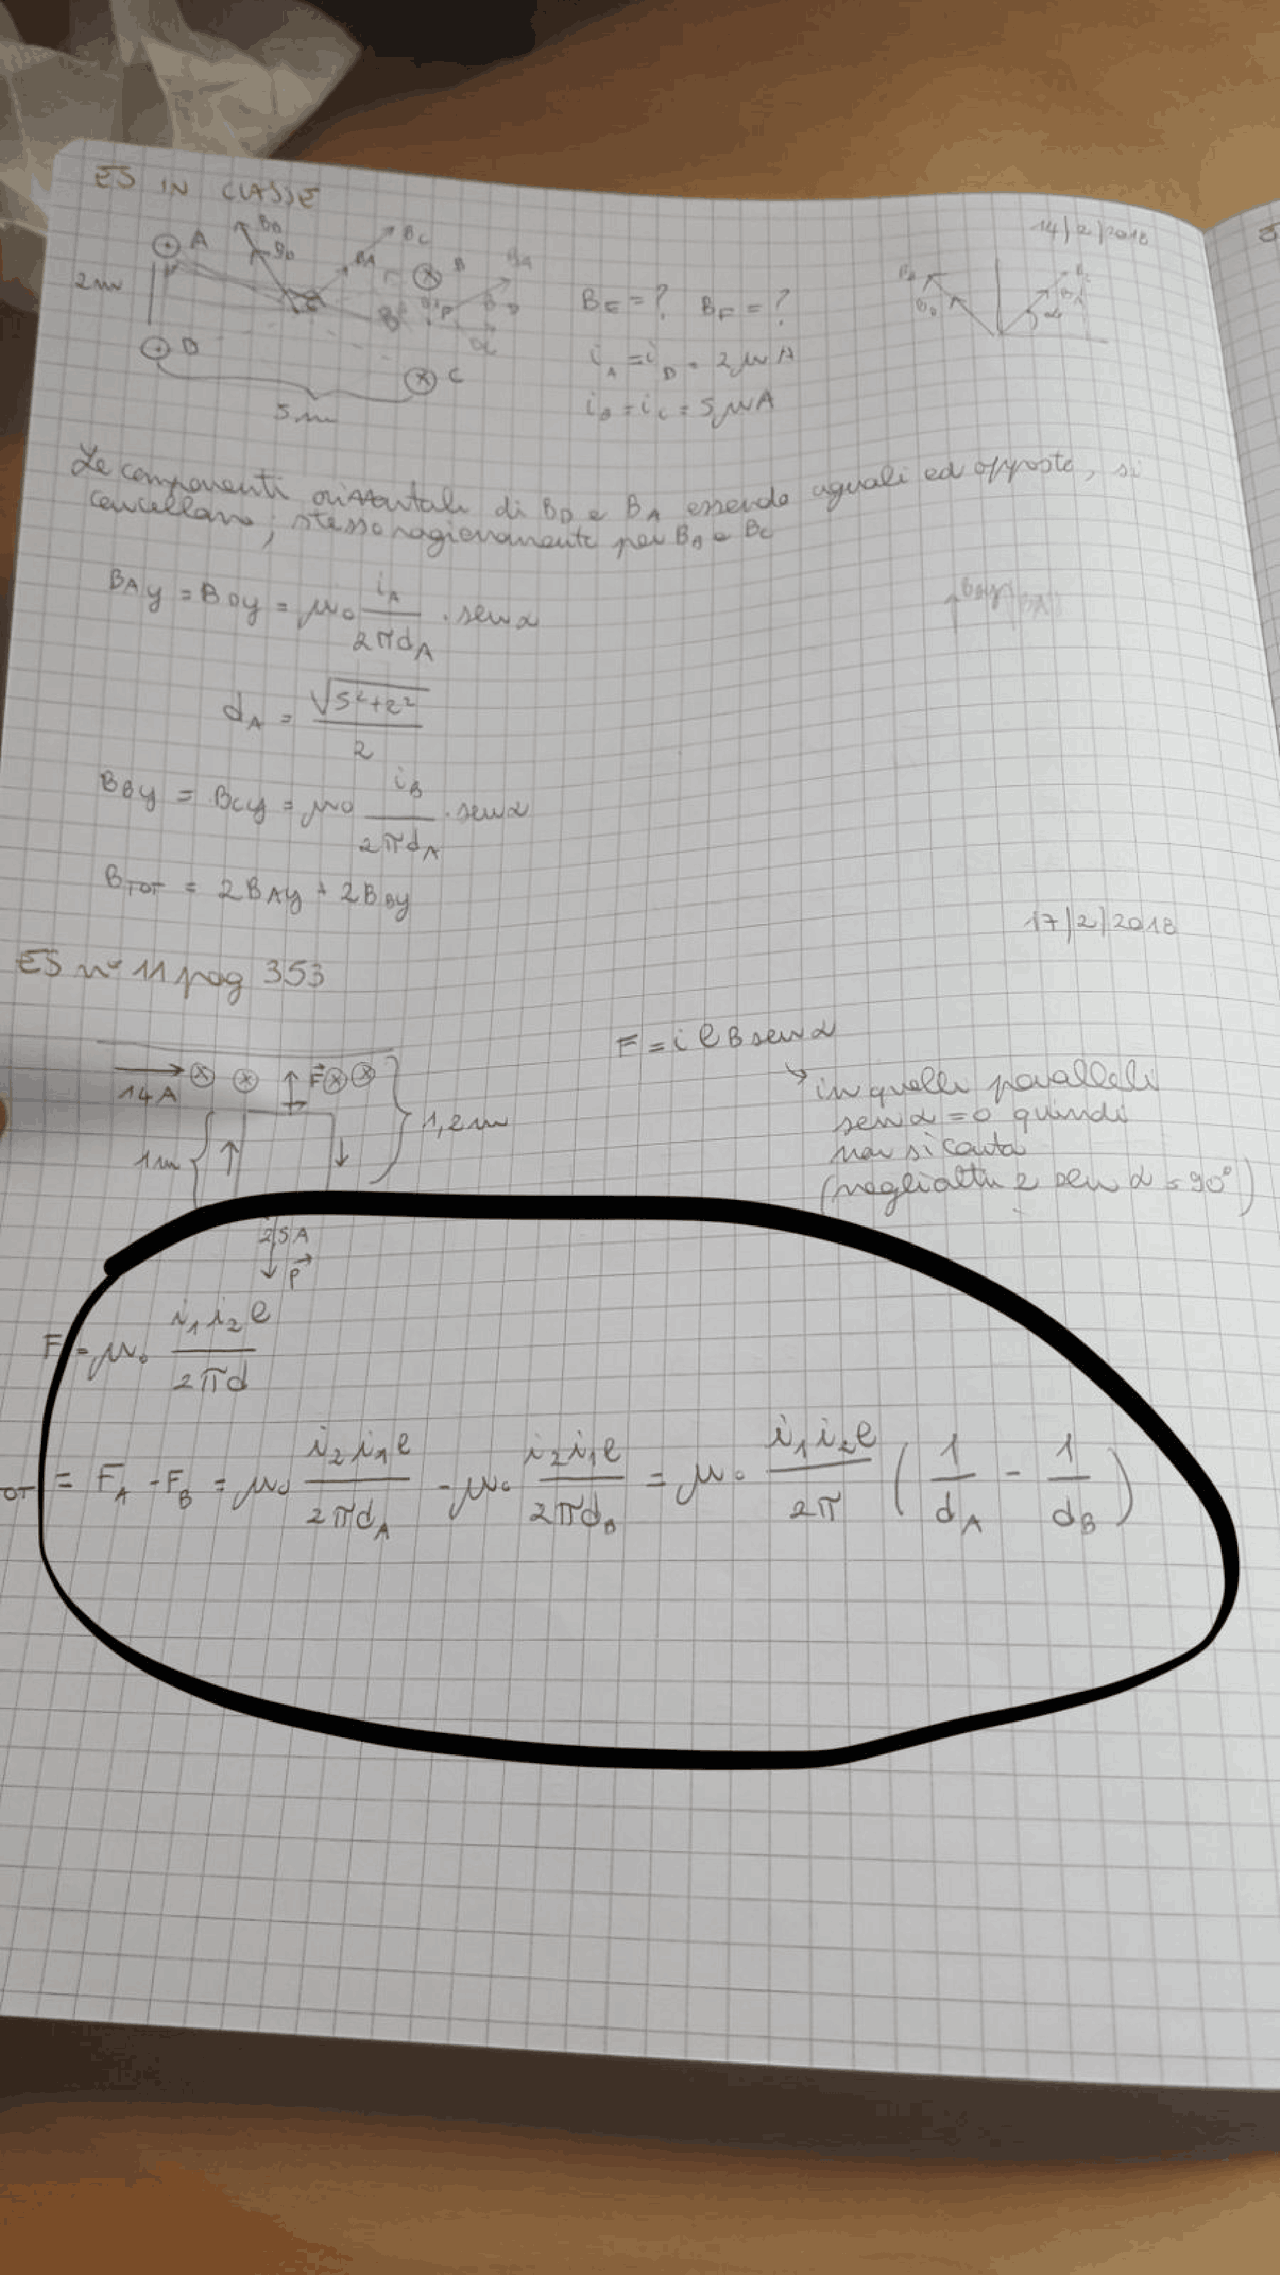 ES IN CLASSE
14/2/2018
A
B_D
90
B_A
B_C
B
2m
D
C
5m
B_E = ? B_F = ?
i_A = i_D = 2 μA
i_B = i_C = 5 μA
Le componenti orizzontali di B_D e B_A essendo uguali ed opposte, si
cancellano; stesso ragionamento per B_B e B_C
B_Ay = B_Dy = μ_0 i_A / 2πd_A · sen α
d_A = √(5²+2²) / 2
B_By = B_Cy = μ_0 i_B / 2πd_A · sen α
B_TOT = 2B_Ay + 2B_By
17/2/2018
ES n° 11 pag 353
F = i l B sen α
14A
F
1,2m
1m
in quelli paralleli
sen α = 0 quindi
non si conta
(negli altri 2 sen α = 90°)
2,5A
P
F = μ_0 i_1 i_2 l / 2πd
OT = F_A - F_B = μ_0 i_2 i_1 l / 2πd_A - μ_0 i_2 i_1 l / 2πd_B = μ_0 i_1 i_2 l / 2π (1/d_A - 1/d_B)